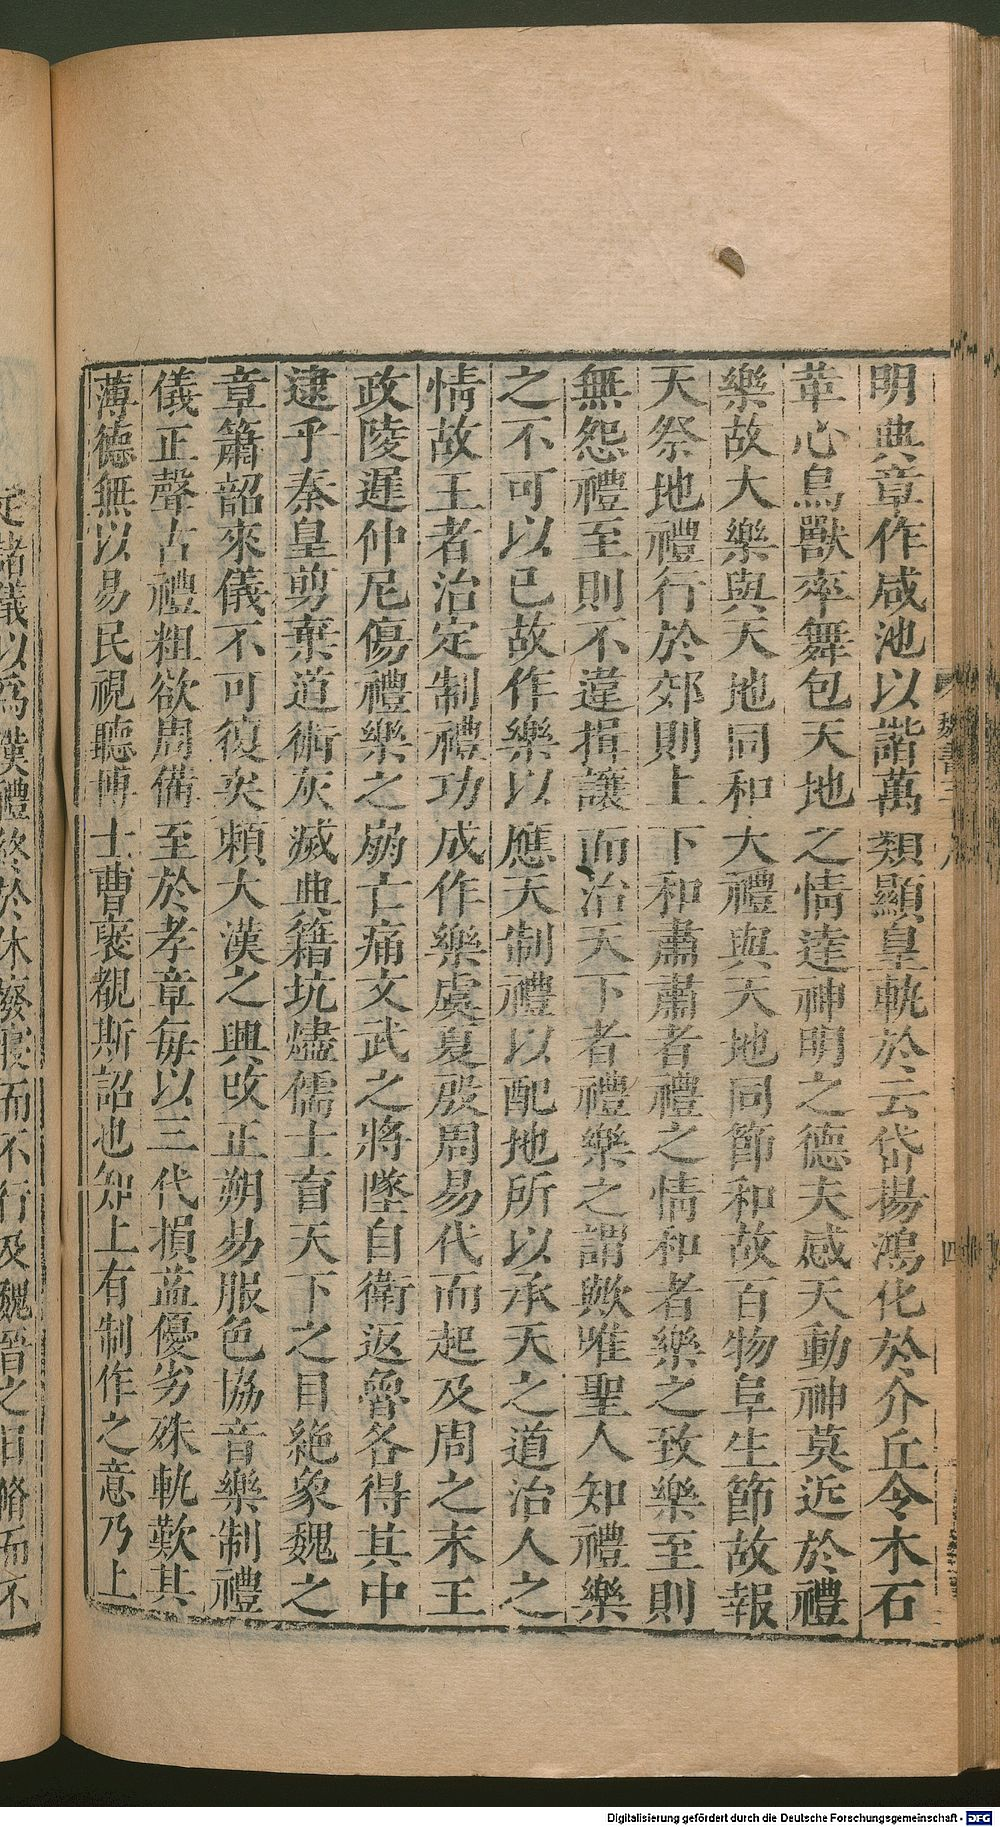 明典章作咸池以諧萬類顯皇軌於云岱揚鴻化於介丘令木石
革心鳥獸率舞包天地之情達神明之德夫感天動神莫近於禮
樂故大樂與天地同和大禮與天地同節和故百物阜生節故報
天祭地禮行於郊則上下和肅肅者禮之情和者樂之致樂至則
無怨禮至則不違揖讓而治天下者禮樂之謂歟唯聖人知禮樂
之不可以已故作樂以應天制禮以配地所以承天之道治人之
情故王者治定制禮功成作樂虞夏殷周易代而起及周之末王
政陵遲仲尼傷禮樂之崩亡痛文武之將墜自衛返魯各得其中
逮乎秦皇剪棄道術灰滅典籍坑燼儒士盲天下之目絶象魏之
章簫韶來儀不可復矣賴大漢之興改正朔易服色協音樂制禮
儀正聲古禮粗欲周備至於孝章每以三代損益優劣殊軌歎其
薄德無以易民視聽博士曹褒覩斯詔也知上有制作之意乃上
魏書
四
定諸儀以爲漢禮終於休廢寢而不行及魏晉之日脩而不
Digitalisierung gefördert durch die Deutsche Forschungsgemeinschaft - DFG